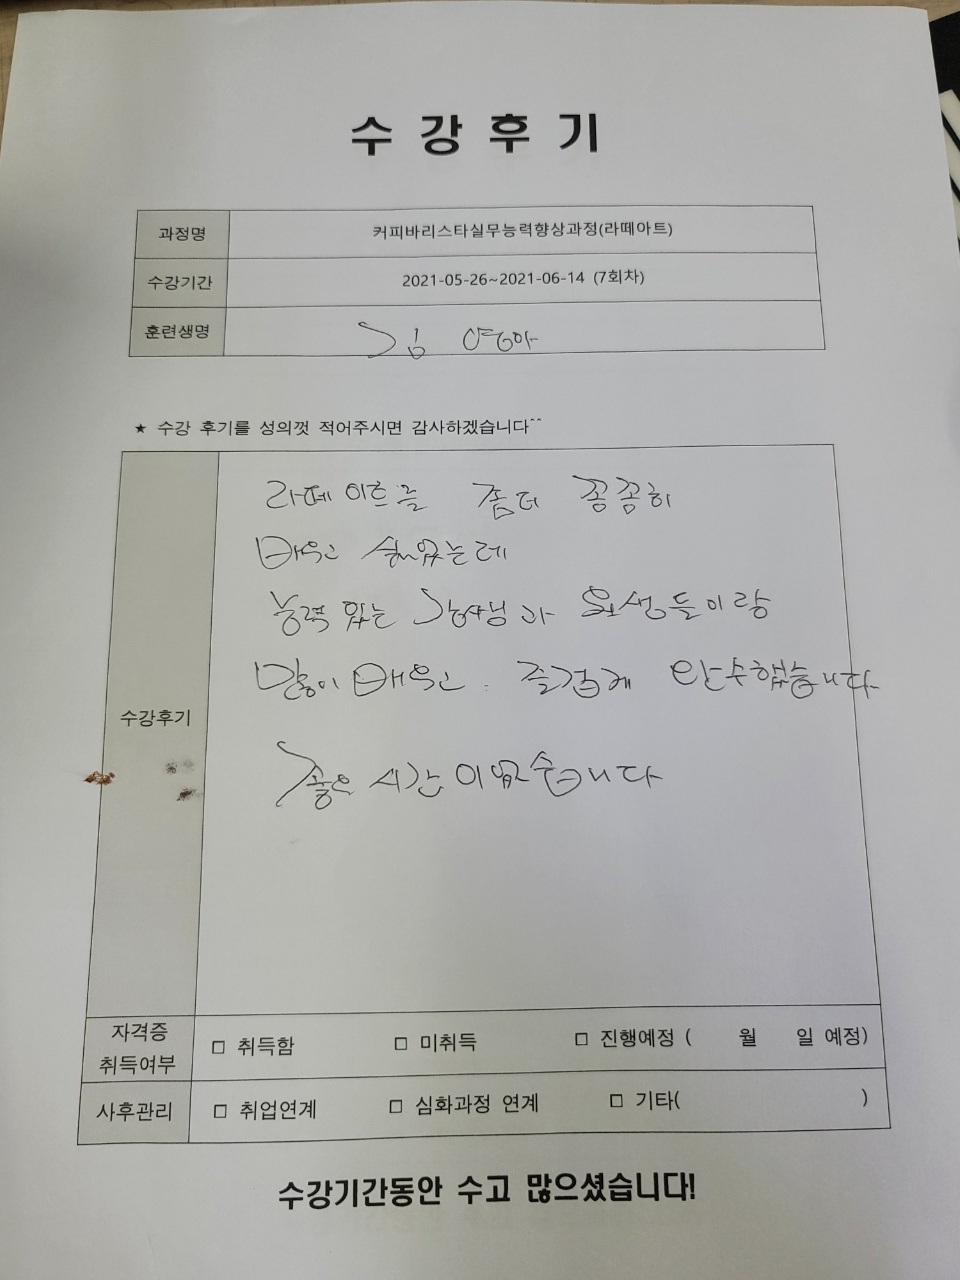 수강후기
과정명 커피바리스타실무능력향상과정(라떼아트)
수강기간 2021-05-26~2021-06-14 (7회차)
훈련생명 김 영아
★ 수강 후기를 성의껏 적어주시면 감사하겠습니다^^
수강후기
라떼 아트를 좀더 꼼꼼히
배우고 싶었는데
능력 있는 강사님과 학생들이랑
많이 배우고 즐겁게 완수했습니다
좋은 시간이었습니다
자격증 취득여부 □ 취득함 □ 미취득 □ 진행예정 ( 월 일 예정)
사후관리 □ 취업연계 □ 심화과정 연계 □ 기타( )
수강기간동안 수고 많으셨습니다!